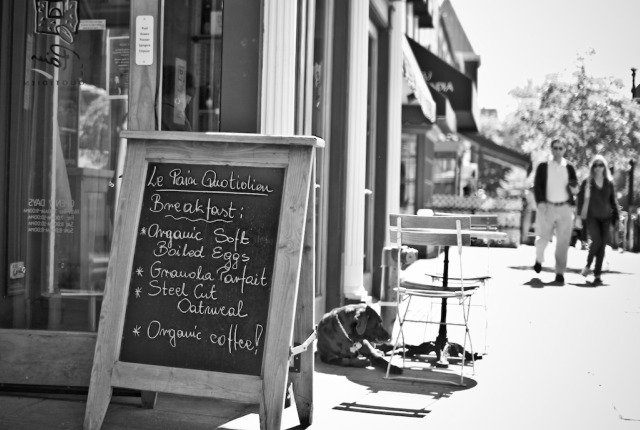 Le Pain Quotidien
Breakfast:
*Organic Soft
Boiled Eggs
* Granola Parfait
* Steel Cut
Oatmeal
* Organic coffee!